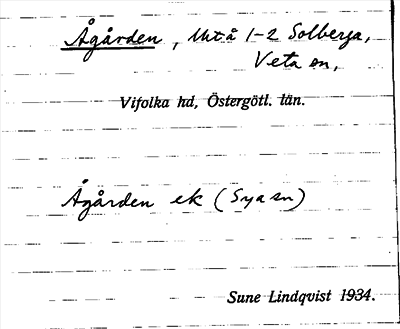 Ågården, Mtå 1-2 Solberga,
Veta sn,
Vifolka hd, Östergötl. län.
Ågården ek (Sya sn)
Sune Lindqvist 1934.